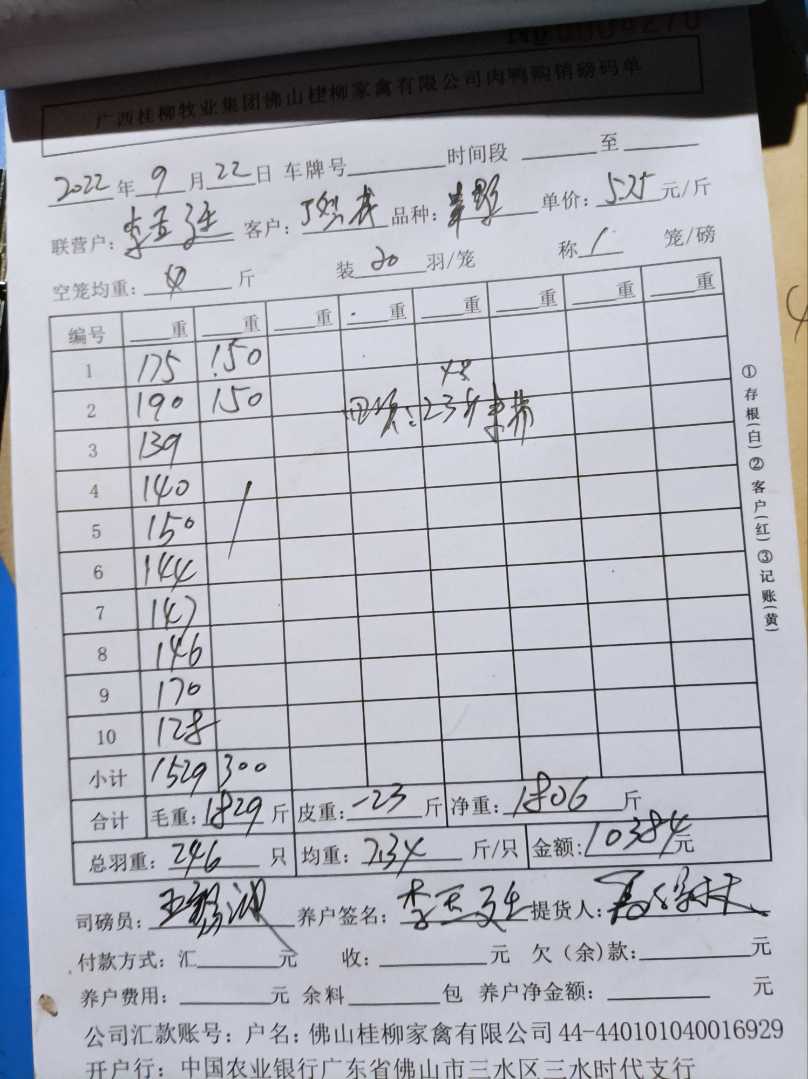 广西桂柳牧业集团佛山桂柳家禽有限公司肉鸭购销磅码单
2022年9月22日 车牌号 时间段 至
联营户: 客户: 品种: 单价: 5.75 元/斤
空笼均重: 斤 装 20 羽/笼 称 1 笼/磅
编号 重 重 重 重 重 重 重 重
1 175 150
2 190 150
3 139
4 140
5 150
6 144
7 147
8 146
9 170
10 128
小计 1529 300
合计 毛重: 1829 斤 皮重: -23 斤 净重: 1806 斤
总羽重: 246 只 均重: 7.34 斤/只 金额: 10384元
司磅员: 养户签名: 提货人:
付款方式: 汇 元 收: 元 欠(余)款: 元
养户费用: 元 余料 包 养户净金额: 元
公司汇款账号: 户名: 佛山桂柳家禽有限公司 44-440101040016929
开户行: 中国农业银行广东省佛山市三水区三水时代支行
①存根(白)②客户(红)③记账(黄)